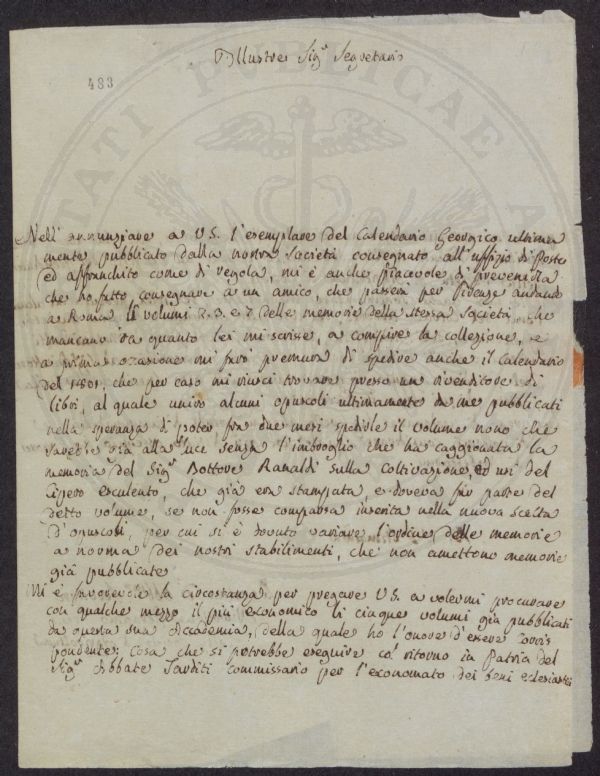 Illustre Sig.r Segretario
483
Nell' annunziare a V.S. l'esemplare del Calendario Georgico ultima
mente pubblicato dalla nostra Società consegnato all'uffizio di Posta
ed affranchito come di regola, mi è anche piacevole di prevenirla
che ho fatto consegnare a un amico, che passerà per Firenze andando
a Roma li volumi 2. 3. e 7. delle memorie della stessa Società, che
mancano da quanto lei mi scrisse, a compire la collezione, e
a prima occasione mi farò premura di spedire anche il Calendario
del che per caso mi riuscì trovare presso un rivenditore di
libri, al quale unirò alcuni opuscoli ultimamente da me pubblicati
nella speranza di poter, fra due mesi spedirle il volume nono che
sarebbe già alla luce senza l'imbroglio che ha caggionata la
memoria del Sig.r Dottore Ranaldi sulla coltivazione, ed usi del
Cipero esculento, che già era stampata, e doveva far parte del
detto volume, se non fosse comparsa inserita nella nuova scelta
d'opuscoli, per cui si è dovuto variare l'ordine delle memorie
a norma dei nostri stabilimenti, che non amettono memorie
già pubblicate
Mi è favorevole la circostanza per pregare V.S. a volermi procurare
con qualche mezzo il più economico li cinque volumi già pubblicati
da questa sua Accademia, della quale ho l'onore d'essere corris
pondente; cosa che si potrebbe eseguire co' ritorno in Patria del
Sig.r Abbate Tarditi commissario per l'economato dei beni eclesiastici
TATI PUBLICAE